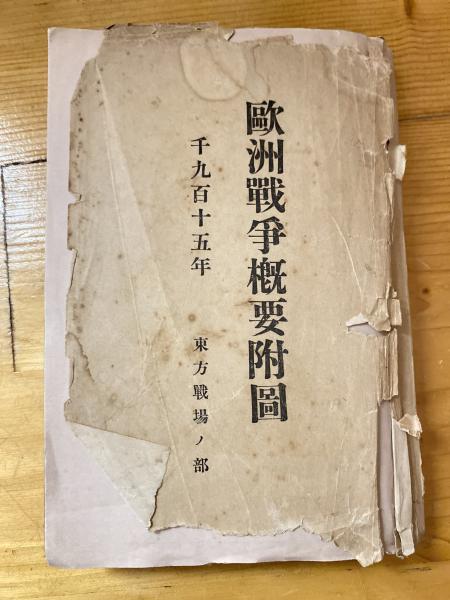 歐洲戰爭槪要附圖
千九百十五年 東方戰場ノ部